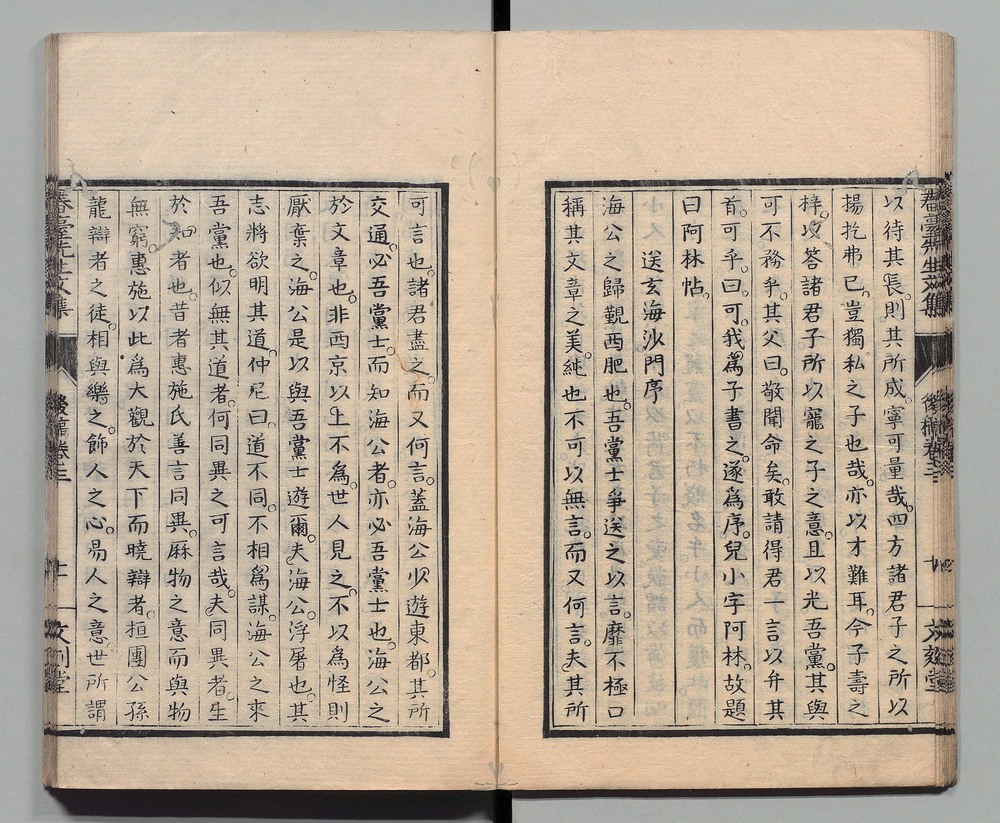 以待其長。則其所成。寧可量哉。四方諸君子之所以
揚抡弗已。豈獨私之子也哉。亦以才難耳。今子壽之
梓。以答諸君子所以寵之子之意。且以光吾黨。其與
可不務乎。其父曰。敬聞命矣。敢請得君一言以弁其
首。可乎。曰。可。我爲子書之。遂爲序。兒小字阿林。故題
曰阿林帖。
送玄海沙門序
海公之歸觀西肥也。吾黨士爭送之以言。靡不極口
稱其文章之美。純也不可以無言。而又何言。夫其所
可言也。諸君盡之。而又何言。蓋海公少遊東都。其所
交通。必吾黨士。而知海公者。亦必吾黨士也。海公之
於文章也。非西京以上不爲。世人見之。不以爲怪則
厭棄之。海公是以與吾黨士遊爾。夫海公。浮屠也。其
志將欲明其道。仲尼曰。道不同。不相爲謀。海公之來
吾黨也。似無其道者。何同異之可言哉。夫同異者。生
於知者也。昔者惠施氏善言同異。麻物之意而與物
無窮。惠施以此爲大觀於天下而曉辯者。桓團公孫
龍辯者之徒。相與樂之。飾人之心。易人之意。世所謂
春臺先生文集
後稿卷三
文刻堂